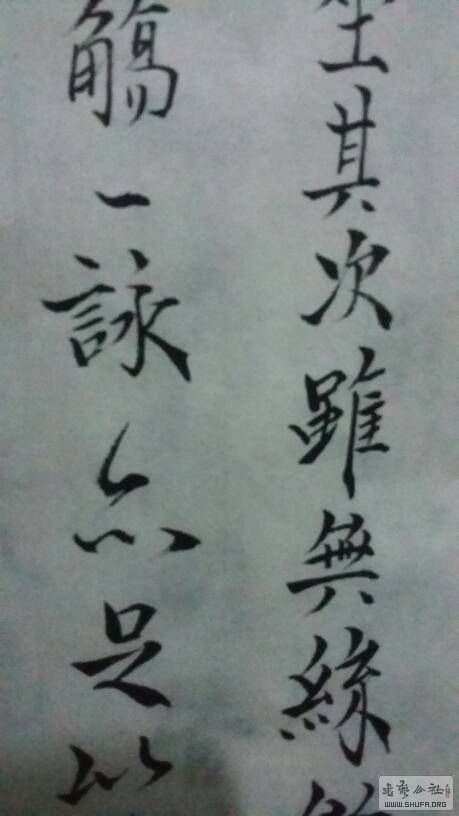 坐其次雖無絲
觴一詠亦足以
WWW.SHUFA.ORG